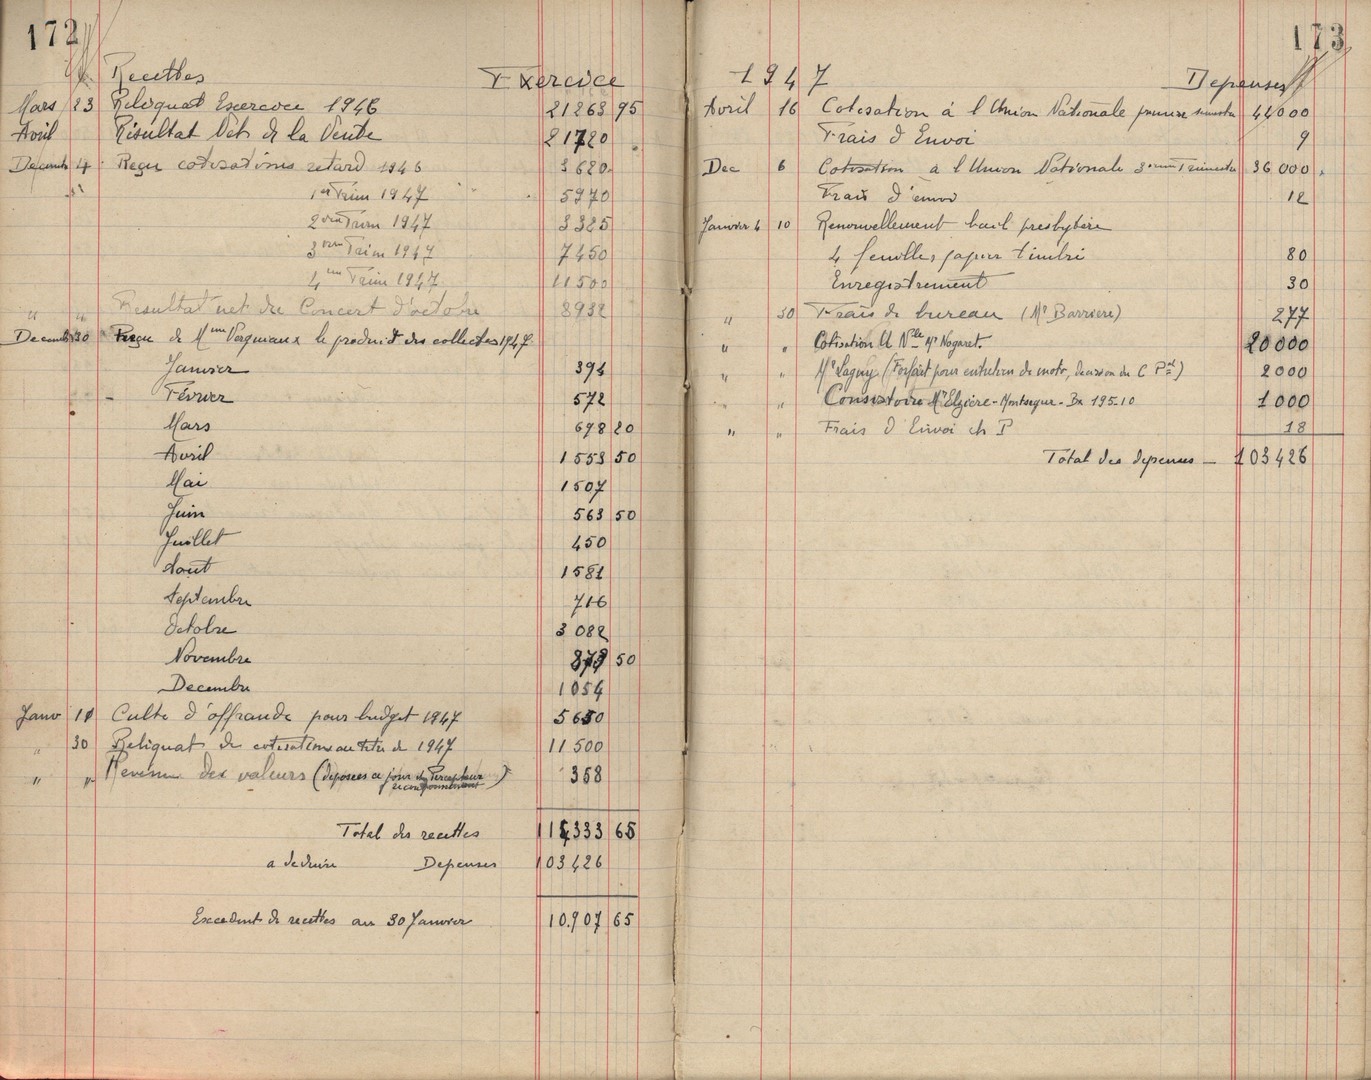 172
Recettes Exercice
Mars 23 Reliquat Exercice 1946 21263 95
Avril Résultat Net de la Vente 21720
Decemb 4 Reçu cotisations retard 1946 3620
1er Trim 1947 " " 5970
2em Trim 1947 3325
3em Trim 1947 7450
4em Trim 1947 11500
" " Resultat net du Concert d'octobre 8932
Decemb 30 Reçu de Mme Vergniaux le produit des collectes 1947
Janvier 394
Février 572
Mars 698 20
Avril 1553 50
Mai 1507
Juin 563 50
Juillet 450
Aout 1581
Septembre 716
Octobre 3082
Novembre 50
Decembre 1054
Janv 11 Culte d'offrande pour budget 1947 5650
" 30 Reliquat de cotisations au titre de 1947 11500
" " Revenu des valeurs (deposées ce jour Percepteur 358
Total des recettes 114333 65
a deduire Depenses 103426
Excedent de recettes au 30 Janvier 10.907 65
173
1947 Depenses
Avril 16 Cotisation à l'Union Nationale premier semestre 44000
Frais d'Envoi 9
Dec 6 Cotisation à l'Union Nationale 3eme Trimestre 36000
Frais d'envoi 12
Janvier 10 Renouvellement bail presbytère
4 feuilles papier timbré 80
Enregistrement 30
" 30 Frais de bureau (Mr Barriere) 277
" " Cotisation U Nle Mr Nogaret. 20000
" " Mr Lagny (Forfait pour entretien de moto, decision du C Pal) 2000
" Consistoire Mr Elzière - Montsegur - Bx 195-10 1000
" " Frais d'Envoi ch P 18
Total des depenses — 103426